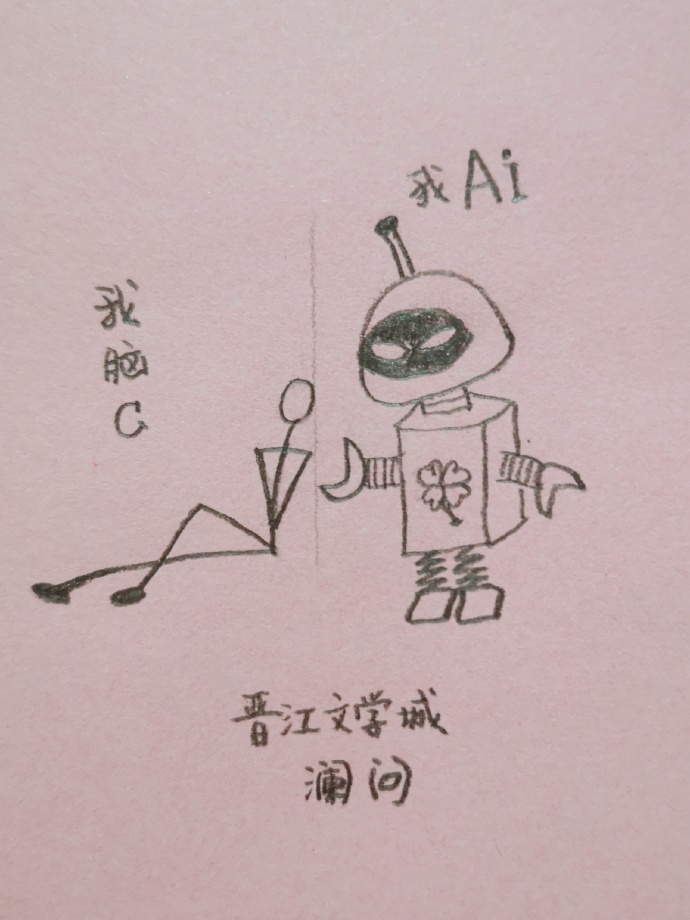 我Ai
我
脑
C
晋江文学城
澜问